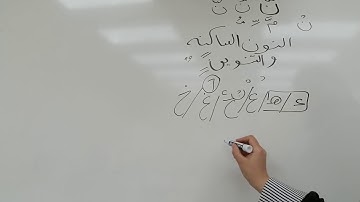 نَّ نِّ نُّ
نْ مّ
النون الساكنه
والتنوين
ء / هـ / ع / ح / غ / خ